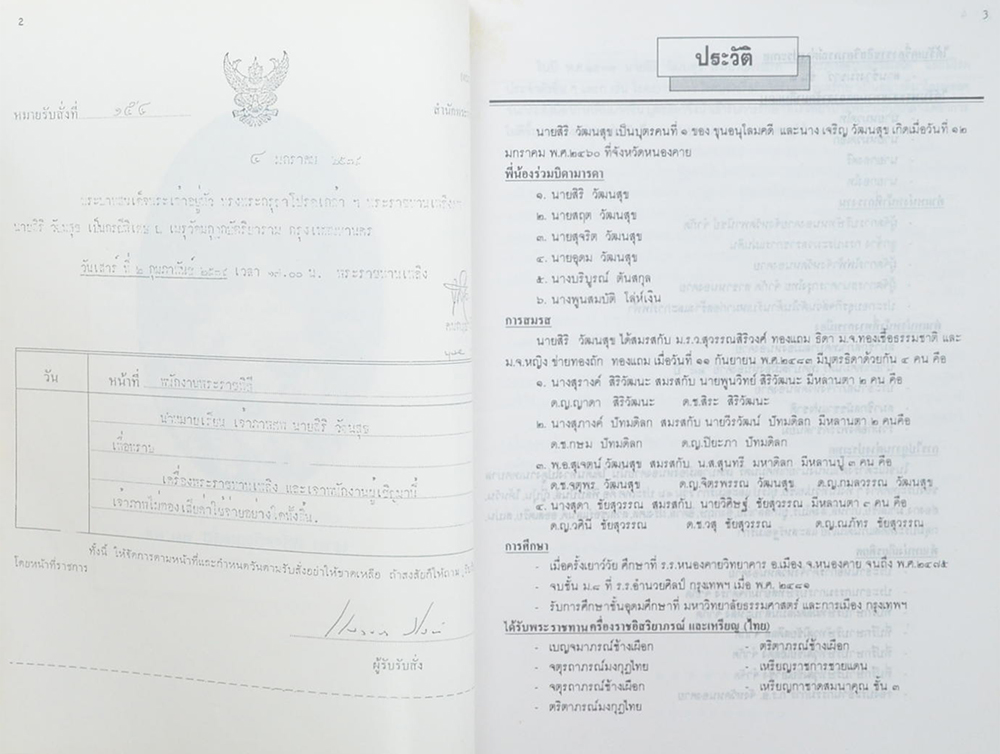 2
หมายรับสั่งที่ ๑๕๔
๔ มกราคม ๒๕๓๔
นายสิริ วัฒนสุข เป็นกรณีพิเศษ ณ เมรุวัดมกุฏกษัตริยาราม กรุงเทพมหานคร
วันเสาร์ ที่ ๒ กุมภาพันธ์ ๒๕๓๔ เวลา ๑๗.๐๐ น. พระราชทานเพลิง
วัน หน้าที่ พนักงานพระราชพิธี
นำหมายเรียน เจ้าภาพศพ นายสิริ วัฒนสุข
เพื่อทราบ
เครื่องพระราชทานเพลิง และเจ้าพนักงานผู้เชิญมานี้
เจ้าภาพไม่ต้องเสียค่าใช้จ่ายอย่างใดทั้งสิ้น.
ทั้งนี้ ให้จัดการตามหน้าที่และกำหนดวันตามรับสั่งอย่าให้ขาดเหลือ ถ้าสงสัยก็ให้ถาม
โดยหน้าที่ราชการ
ผู้รับรับสั่ง
3
ประวัติ
นายสิริ วัฒนสุข เป็นบุตรคนที่ ๑ ของ ขุนอนุโลมคดี และนาง เจริญ วัฒนสุข เกิดเมื่อวันที่ ๑๒
มกราคม พ.ศ.๒๔๖๐ ที่จังหวัดหนองคาย
พี่น้องร่วมบิดามารดา
๑. นายสิริ วัฒนสุข
๒. นายสฤต วัฒนสุข
๓. นายสุจริต วัฒนสุข
๔. นายอุดม วัฒนสุข
๕. นางบริบูรณ์ ตันสกุล
๖. นางพูนสมบัติ โล่ห์เงิน
การสมรส
นายสิริ วัฒนสุข ได้สมรสกับ ม.ร.ว.สุวรรณสิริวงศ์ ทองแถม ธิดา ม.จ.ทองเชื้อธรรมชาติ และ
ม.จ.หญิง ข่ายทองถัก ทองแถม เมื่อวันที่ ๑๑ กันยายน พ.ศ.๒๔๘๓ มีบุตรธิดาด้วยกัน ๔ คน คือ
๑. นางสุรางค์ สิริวัฒนะ สมรสกับ นายพูนวิทย์ สิริวัฒนะ มีหลานตา ๒ คน คือ
ด.ญ.ญาดา สิริวัฒนะ ด.ช.สิระ สิริวัฒนะ
๒. นางสุภางค์ ปัทมดิลก สมรสกับ นายวีรวัฒน์ ปัทมดิลก มีหลานตา ๒ คนคือ
ด.ช.กษม ปัทมดิลก ด.ญ.ปิยะภา ปัทมดิลก
๓. พ.อ.สุเจตน์ วัฒนสุข สมรสกับ น.ส.สุนทรี มหาดิลก มีหลานปู่ ๓ คน คือ
ด.ช.จตุพร วัฒนสุข ด.ญ.จิตรพรรณ วัฒนสุข ด.ญ.กมลวรรณ วัฒนสุข
๔. นางสุดา ชัยสุวรรณ สมรสกับ นายวิศิษฐ์ ชัยสุวรรณ มีหลานตา ๓ คน คือ
ด.ญ.วศินี ชัยสุวรรณ ด.ช.วสุ ชัยสุวรรณ ด.ญ.ณภัทร ชัยสุวรรณ
การศึกษา
- เมื่อครั้งเยาว์วัย ศึกษาที่ ร.ร.หนองคายวิทยาคาร อ.เมือง จ.หนองคาย จนถึง พ.ศ.๒๔๗๕
- จบชั้น ม.๘ ที่ ร.ร.อำนวยศิลป์ กรุงเทพฯ เมื่อ พ.ศ. ๒๔๘๑
- รับการศึกษาชั้นอุดมศึกษาที่ มหาวิทยาลัยธรรมศาสตร์ และการเมือง กรุงเทพฯ
ได้รับพระราชทานเครื่องราชอิสริยาภรณ์ และเหรียญ (ไทย)
- เบญจมาภรณ์ช้างเผือก - ตริตาภรณ์ช้างเผือก
- จตุรถาภรณ์มงกุฎไทย - เหรียญราชการชายแดน
- จตุรถาภรณ์ช้างเผือก - เหรียญกาชาดสมนาคุณ ชั้น ๓
- ตริตาภรณ์มงกุฎไทย